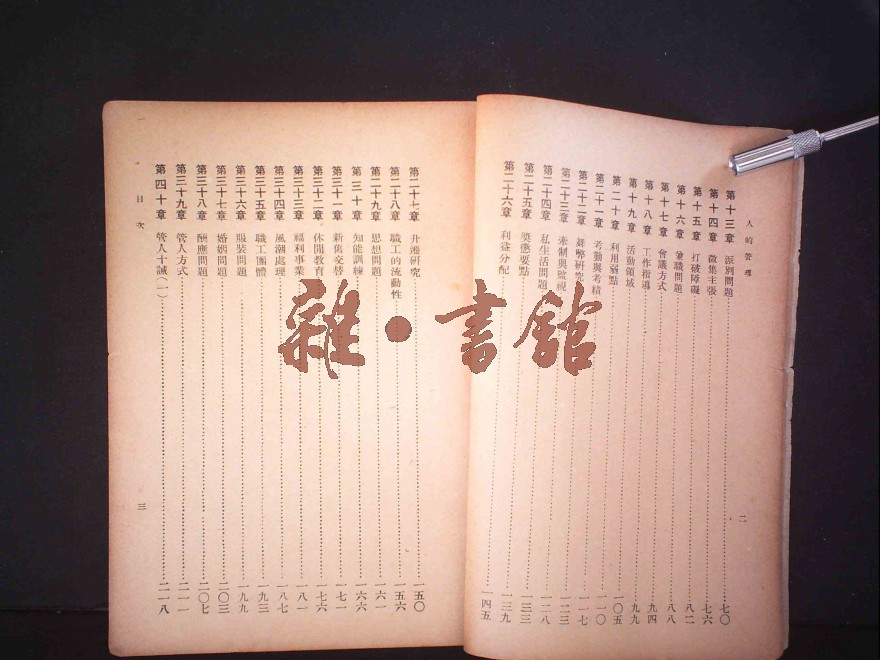 人的管理
二
第十三章 派別問題 七〇
第十四章 徵集主張 七六
第十五章 打破障礙 八二
第十六章 兼職問題 八八
第十七章 會議方式 九四
第十八章 工作指導 九九
第十九章 活動領域 一〇五
第二十章 利用弱點 一一〇
第二十一章 考勤與考績 一一七
第二十二章 舞弊研究 一二三
第二十三章 牽制與監視 一二八
第二十四章 私生活問題 一三三
第二十五章 獎懲要點 一三九
第二十六章 利益分配 一四五
第二十七章 升遷研究 一五〇
第二十八章 職工的流動性 一五六
第二十九章 思想問題 一六一
第三十章 知能訓練 一六六
第三十一章 新舊交替 一七一
第三十二章 休閒教育 一七六
第三十三章 福利事業 一八一
第三十四章 風潮處理 一八七
第三十五章 職工團體 一九三
第三十六章 服裝問題 一九九
第三十七章 婚姻問題 二〇三
第三十八章 酬應問題 二〇七
第三十九章 管人方式 二一一
第四十章 管人十誡(一) 二一八
目次
三
雜·書館